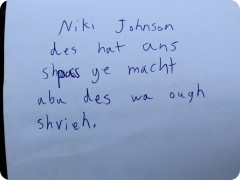 Niki Johnson
des hat ans
shpass ge macht
aba des wa ough
shvieh.